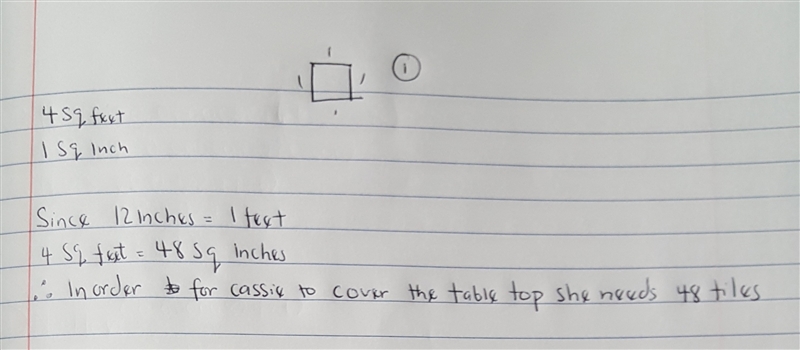 1
1 1 ①
1
4 Sq feet
1 Sq Inch
Since 12 Inches = 1 feet
4 Sq feet = 48 Sq inches
∴ In order for cassie to cover the table top she needs 48 tiles